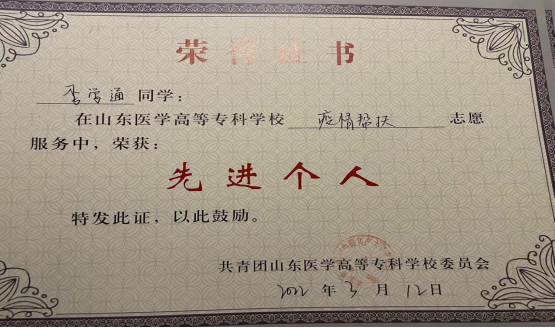 荣誉证书
李学通同学：
在山东医学高等专科学校 疫情帮扶 志愿
服务中，荣获：
先进个人
特发此证，以此鼓励。
共青团山东医学高等专科学校委员会
2022年3月12日